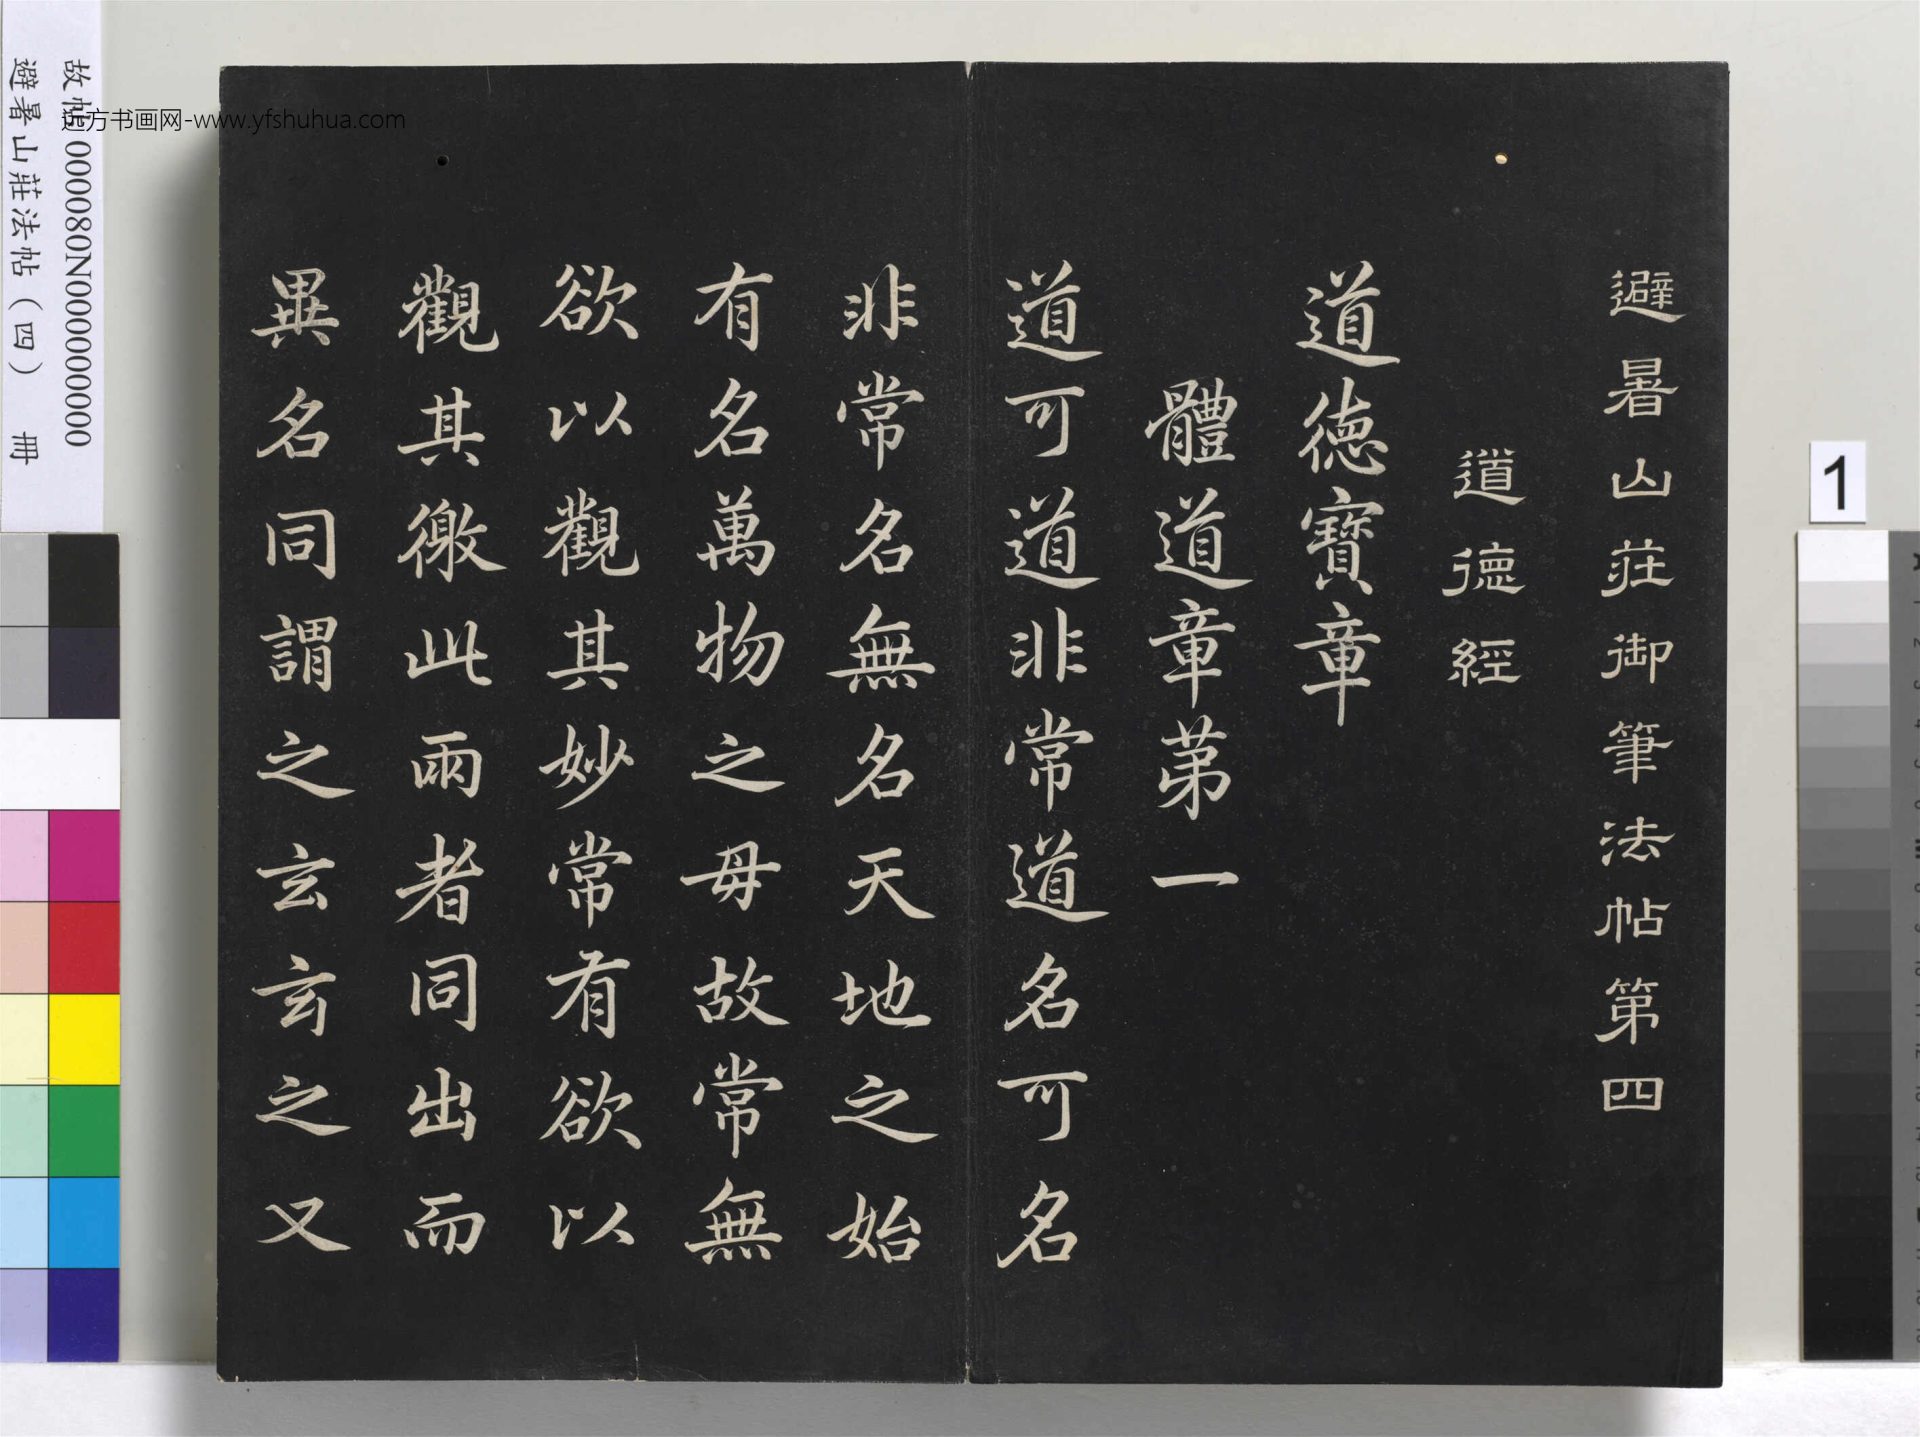 避暑山莊御筆法帖第四
道德經
道德寶章
體道章第一
道可道非常道名可名
非常名無名天地之始
有名萬物之母故常無
欲以觀其妙常有欲以
觀其徼此兩者同出而
異名同謂之玄玄之又
故帖000080N000000000
避暑山莊法帖（四） 冊
远方书画网-www.yfshuhua.com
1